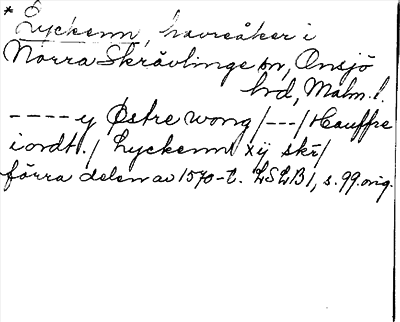 * Lyckenn, havreåker i
Norra Skrävlinge sn, Onsjö
hd, Malm. l.
- - - - y Østre wong / - - - / Hauffre
iordt. / Lyckenn xij skr /
förra delen av 1570-t. LSLB 1, s. 99 orig.